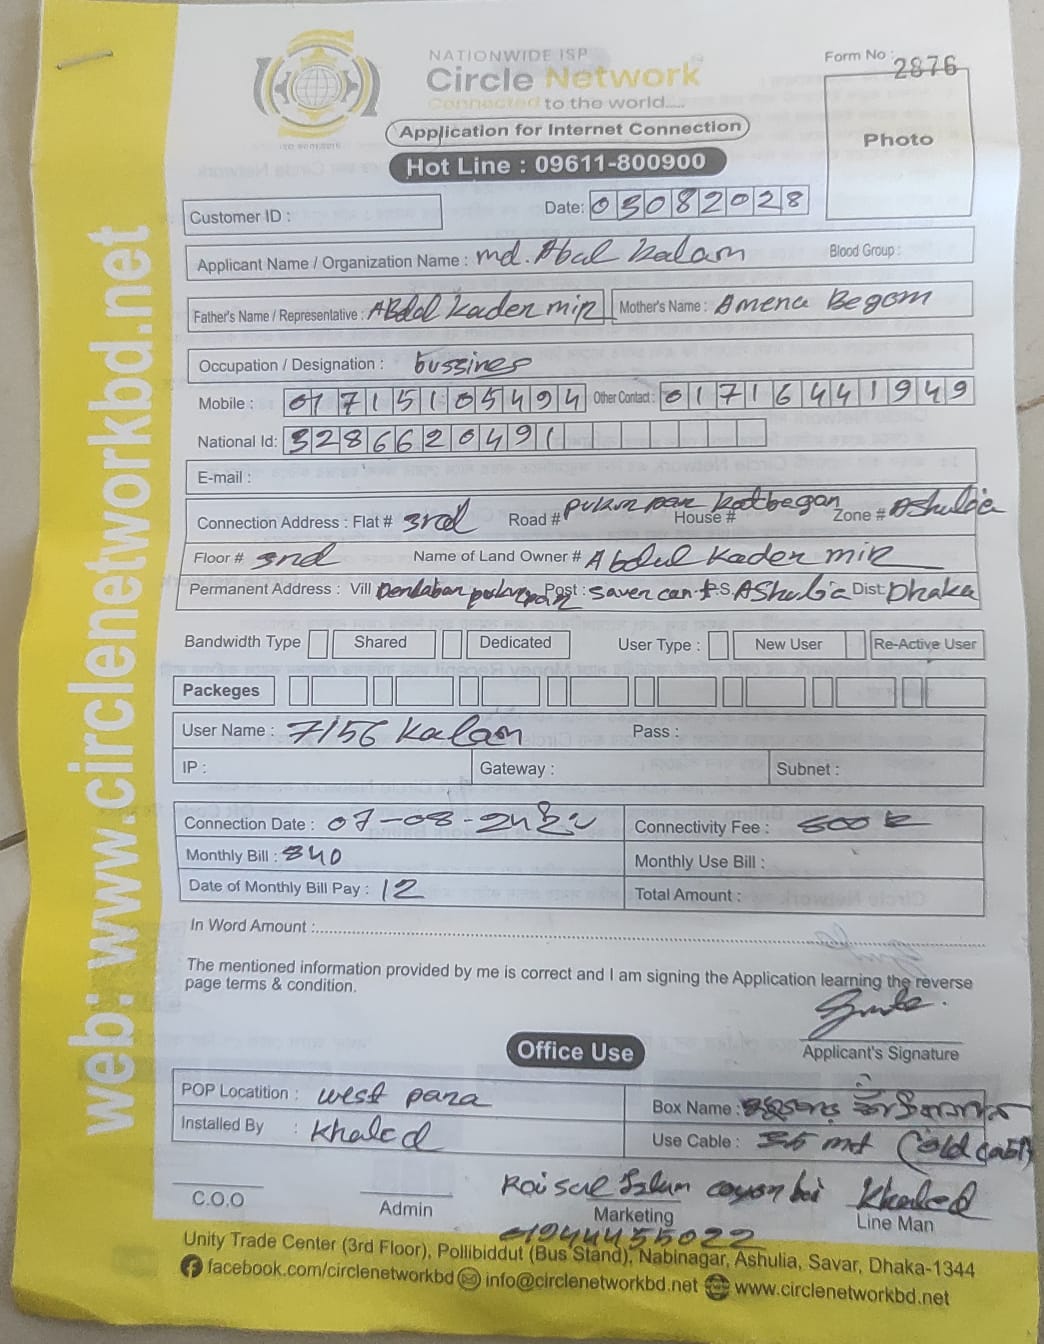 NATIONWIDE ISP
Circle Network
Connected to the world.....
Form No : 2876
Application for Internet Connection
Photo
Hot Line : 09611-800900
ISO 9001:2015
Customer ID :
Date: 03082028
Applicant Name / Organization Name : md. Abul kalam Blood Group :
Father's Name / Representative : ABdul kader mir Mother's Name : Amena Begom
Occupation / Designation : bussines
Mobile : 01715105494 Other Contact : 01716441949
National Id: 3286620491
E-mail :
Connection Address : Flat # 3rd Road # pukur par katbagan House # Zone # Ashulia
Floor # 3rd Name of Land Owner # Abdul kader mir
Permanent Address : Vill Dendabar pukurpar Post : saver can-t P.S. AShulia Dist: Dhaka
Bandwidth Type Shared Dedicated User Type : New User Re-Active User
Packeges
User Name : 7156 kalam Pass :
IP : Gateway : Subnet :
Connection Date : 07-08- Connectivity Fee : 500
Monthly Bill : 840 Monthly Use Bill :
Date of Monthly Bill Pay : 12 Total Amount :
In Word Amount :
The mentioned information provided by me is correct and I am signing the Application learning the reverse
page terms & condition.
Applicant's Signature
Office Use
POP Locatition : west para Box Name :
Installed By : Khaled Use Cable : mt (old cable)
C.O.O Admin Raisul Islam Khaled
Marketing Line Man
01944455022
Unity Trade Center (3rd Floor), Pollibiddut (Bus Stand), Nabinagar, Ashulia, Savar, Dhaka-1344
facebook.com/circlenetworkbd info@circlenetworkbd.net www.circlenetworkbd.net
web: www.circlenetworkbd.net